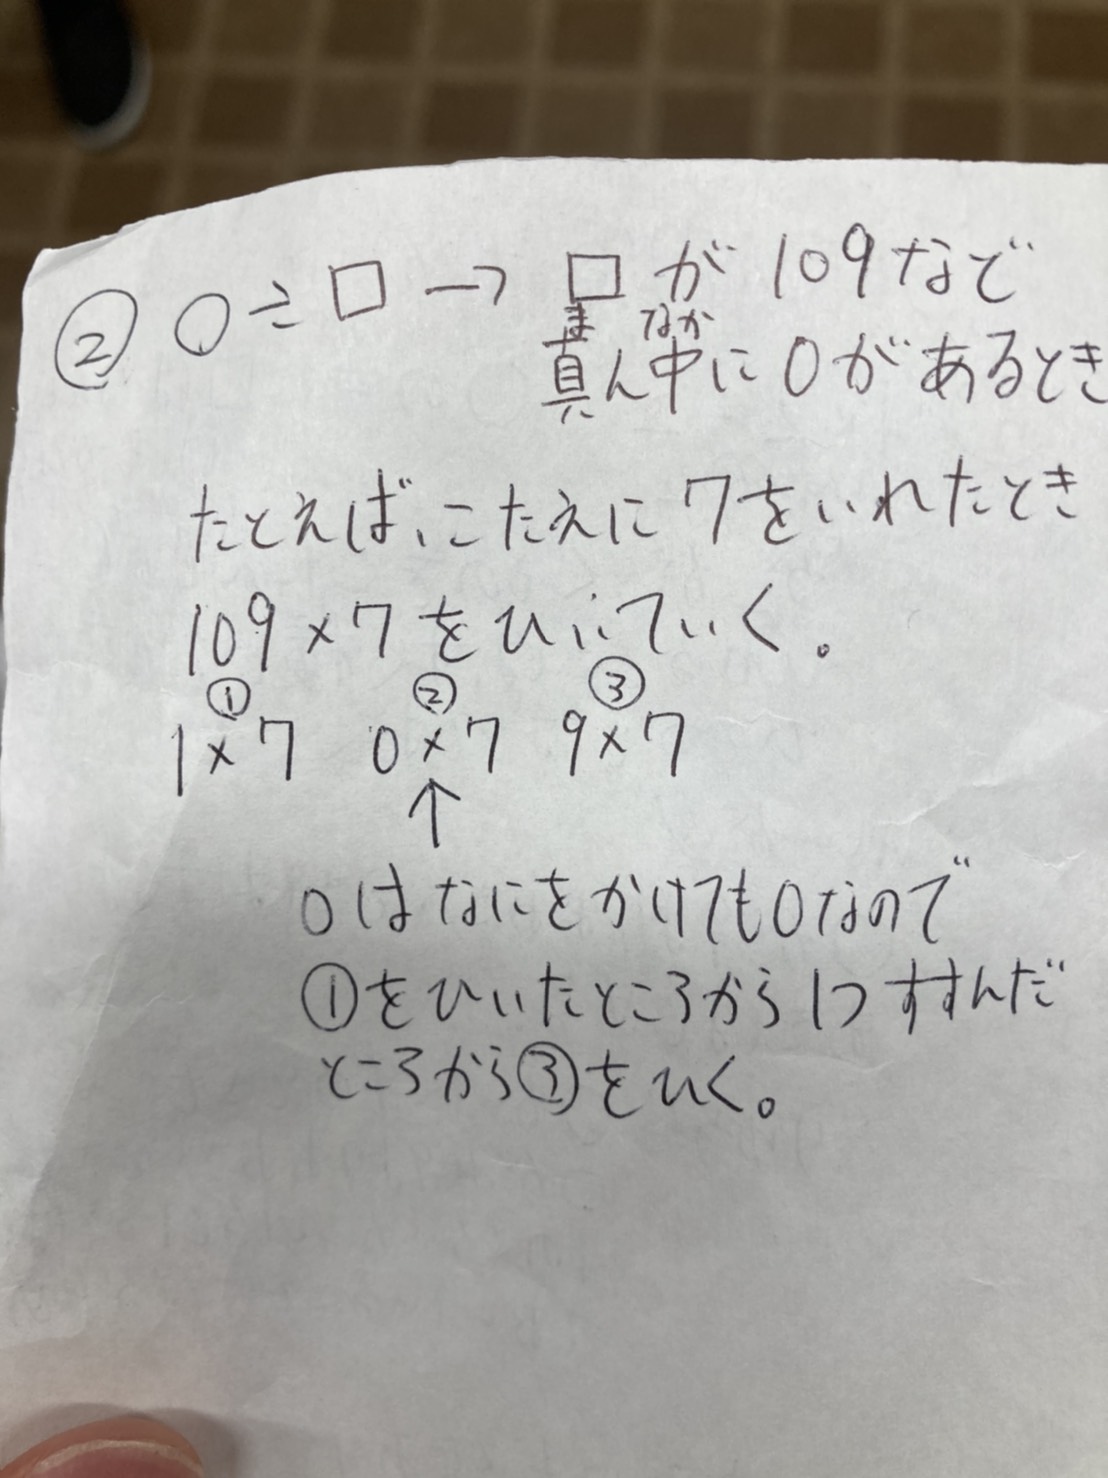 ② ○÷□→□が109など
まなか
真ん中に0があるとき
たとえば、こたえに7をいれたとき
109×7をひいていく。
① ② ③
1×7 0×7 9×7
↑
0はなにをかけても0なので
①をひいたところから1つすすんだ
ところから③をひく。